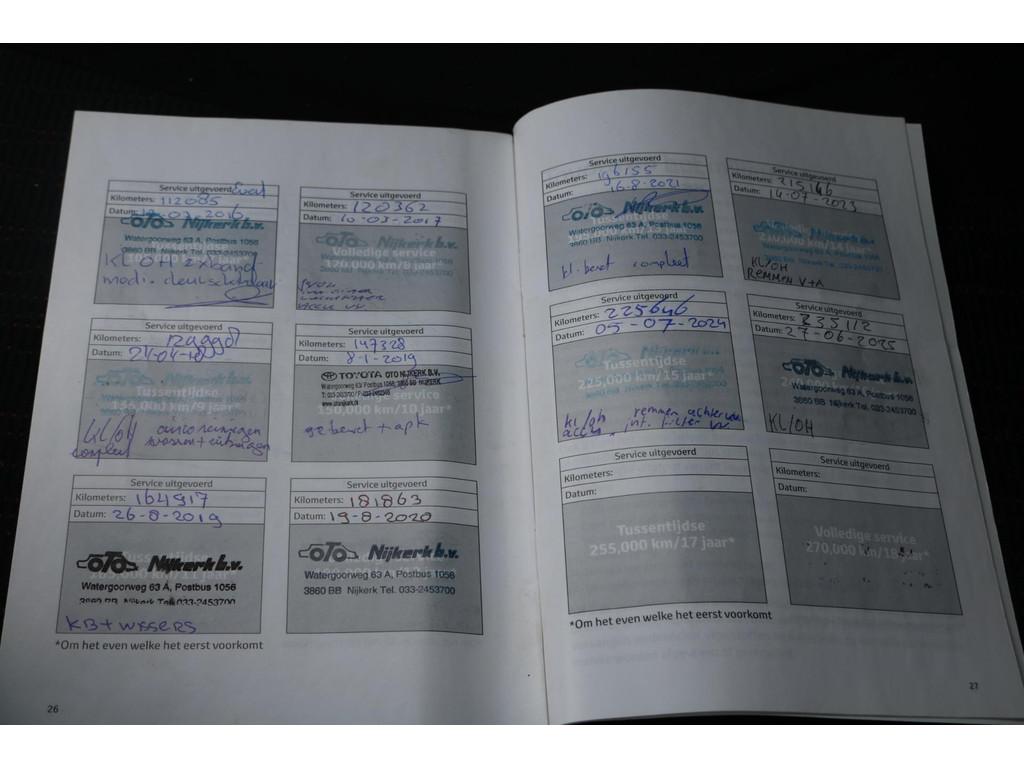 Service uitgevoerd
Kilometers: 112085
Datum: 2016
OTO Nijkerk b.v.
Watergoorweg 63 A, Postbus 1056
3860 BB Nijkerk Tel. 033-2453700
KL/OH 2x band
Service uitgevoerd
Kilometers: 120362
Datum: 10-03-2017
OTO Nijkerk b.v.
Volledige service
120,000 km/8 jaar*
Service uitgevoerd
Kilometers:
Datum: 24-04-18
OTO Nijkerk b.v.
135,000 km/9 jaar*
KL/OH
compleet
Service uitgevoerd
Kilometers: 147328
Datum: 8-1-2019
TOYOTA OTO NIJKERK B.V.
Watergoorweg 63/ Postbus 1056, 3860 BB NIJKERK
service
150,000 km/10 jaar*
gebeurt + apk
Service uitgevoerd
Kilometers: 164917
Datum: 26-8-2019
Tussentijdse
OTO Nijkerk b.v.
165,000 km/11 jaar*
Watergoorweg 63 A, Postbus 1056
3860 BB Nijkerk Tel. 033-2453700
KB+WISSERS
Service uitgevoerd
Kilometers: 181863
Datum: 19-8-2020
OTO Nijkerk b.v.
Watergoorweg 63 A, Postbus 1056
3860 BB Nijkerk Tel. 033-2453700
*Om het even welke het eerst voorkomt
26
Service uitgevoerd
Kilometers: 196155
16-8-2021
OTO Nijkerk b.v.
Tussentijdse
Watergoorweg 63 A, Postbus 1056
3860 BB Nijkerk Tel. 033-2453700
kl. beurt compleet
Service uitgevoerd
Kilometers: 215146
Datum: 14-07-2023
OTO Nijkerk b.v.
KL/OH
REMMEN V+A
Service uitgevoerd
Kilometers: 225646
Datum: 05-07-2024
OTO Nijkerk b.v.
Tussentijdse
225,000 km/15 jaar*
KL/OH remmen achter
int. filter vv
Service uitgevoerd
Kilometers: 235112
Datum: 27-06-2025
OTO Nijkerk b.v.
Watergoorweg 63 A, Postbus 1056
3860 BB Nijkerk Tel. 033-2453700
KL/OH
Service uitgevoerd
Kilometers:
Datum:
Tussentijdse
255,000 km/17 jaar*
Service uitgevoerd
Kilometers:
Datum:
Volledige service
270,000 km/18 jaar*
*Om het even welke het eerst voorkomt
27